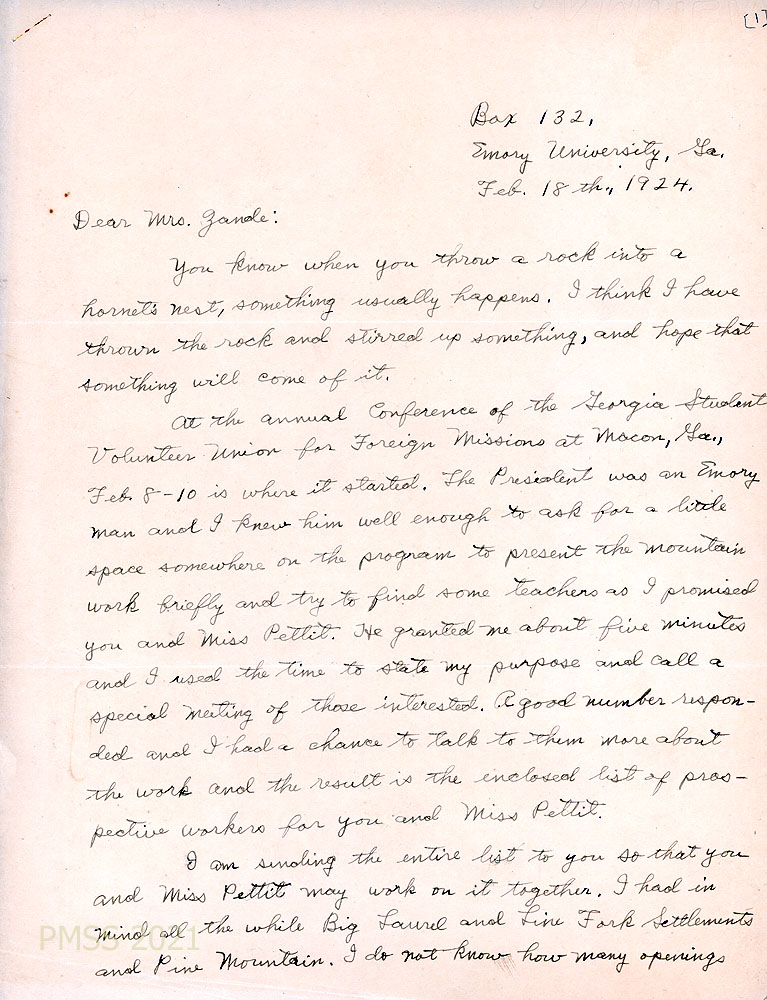 [1]
Box 132,
Emory University, Ga.
Feb. 18th., 1924.
Dear Mrs. Zande:
You know when you throw a rock into a
hornet's nest, something usually happens. I think I have
thrown the rock and stirred up something, and hope that
something will come of it.
At the annual Conference of the Georgia Student
Volunteer Union for Foreign Missions at Macon, Ga.,
Feb. 8-10 is where it started. The President was an Emory
man and I knew him well enough to ask for a little
space somewhere on the program to present the mountain
work briefly and try to find some teachers as I promised
you and Miss Pettit. He granted me about five minutes
and I used the time to state my purpose and call a
special meeting of those interested. A good number respon-
ded and I had a chance to talk to them more about
the work and the result is the enclosed list of pros-
pective workers for you and Miss Pettit.
I am sending the entire list to you so that you
and Miss Pettit may work on it together. I had in
mind all the while Big Laurel and Line Fork Settlements
and Pine Mountain. I do not know how many openings
PMSS 2021